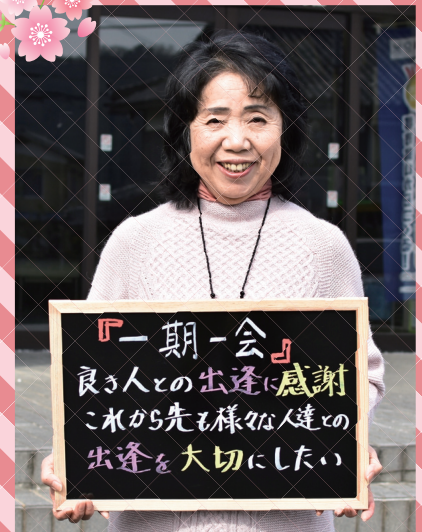 『一期一会』
良き人との出逢に感謝
これから先も様々な人達との
出逢を大切にしたい